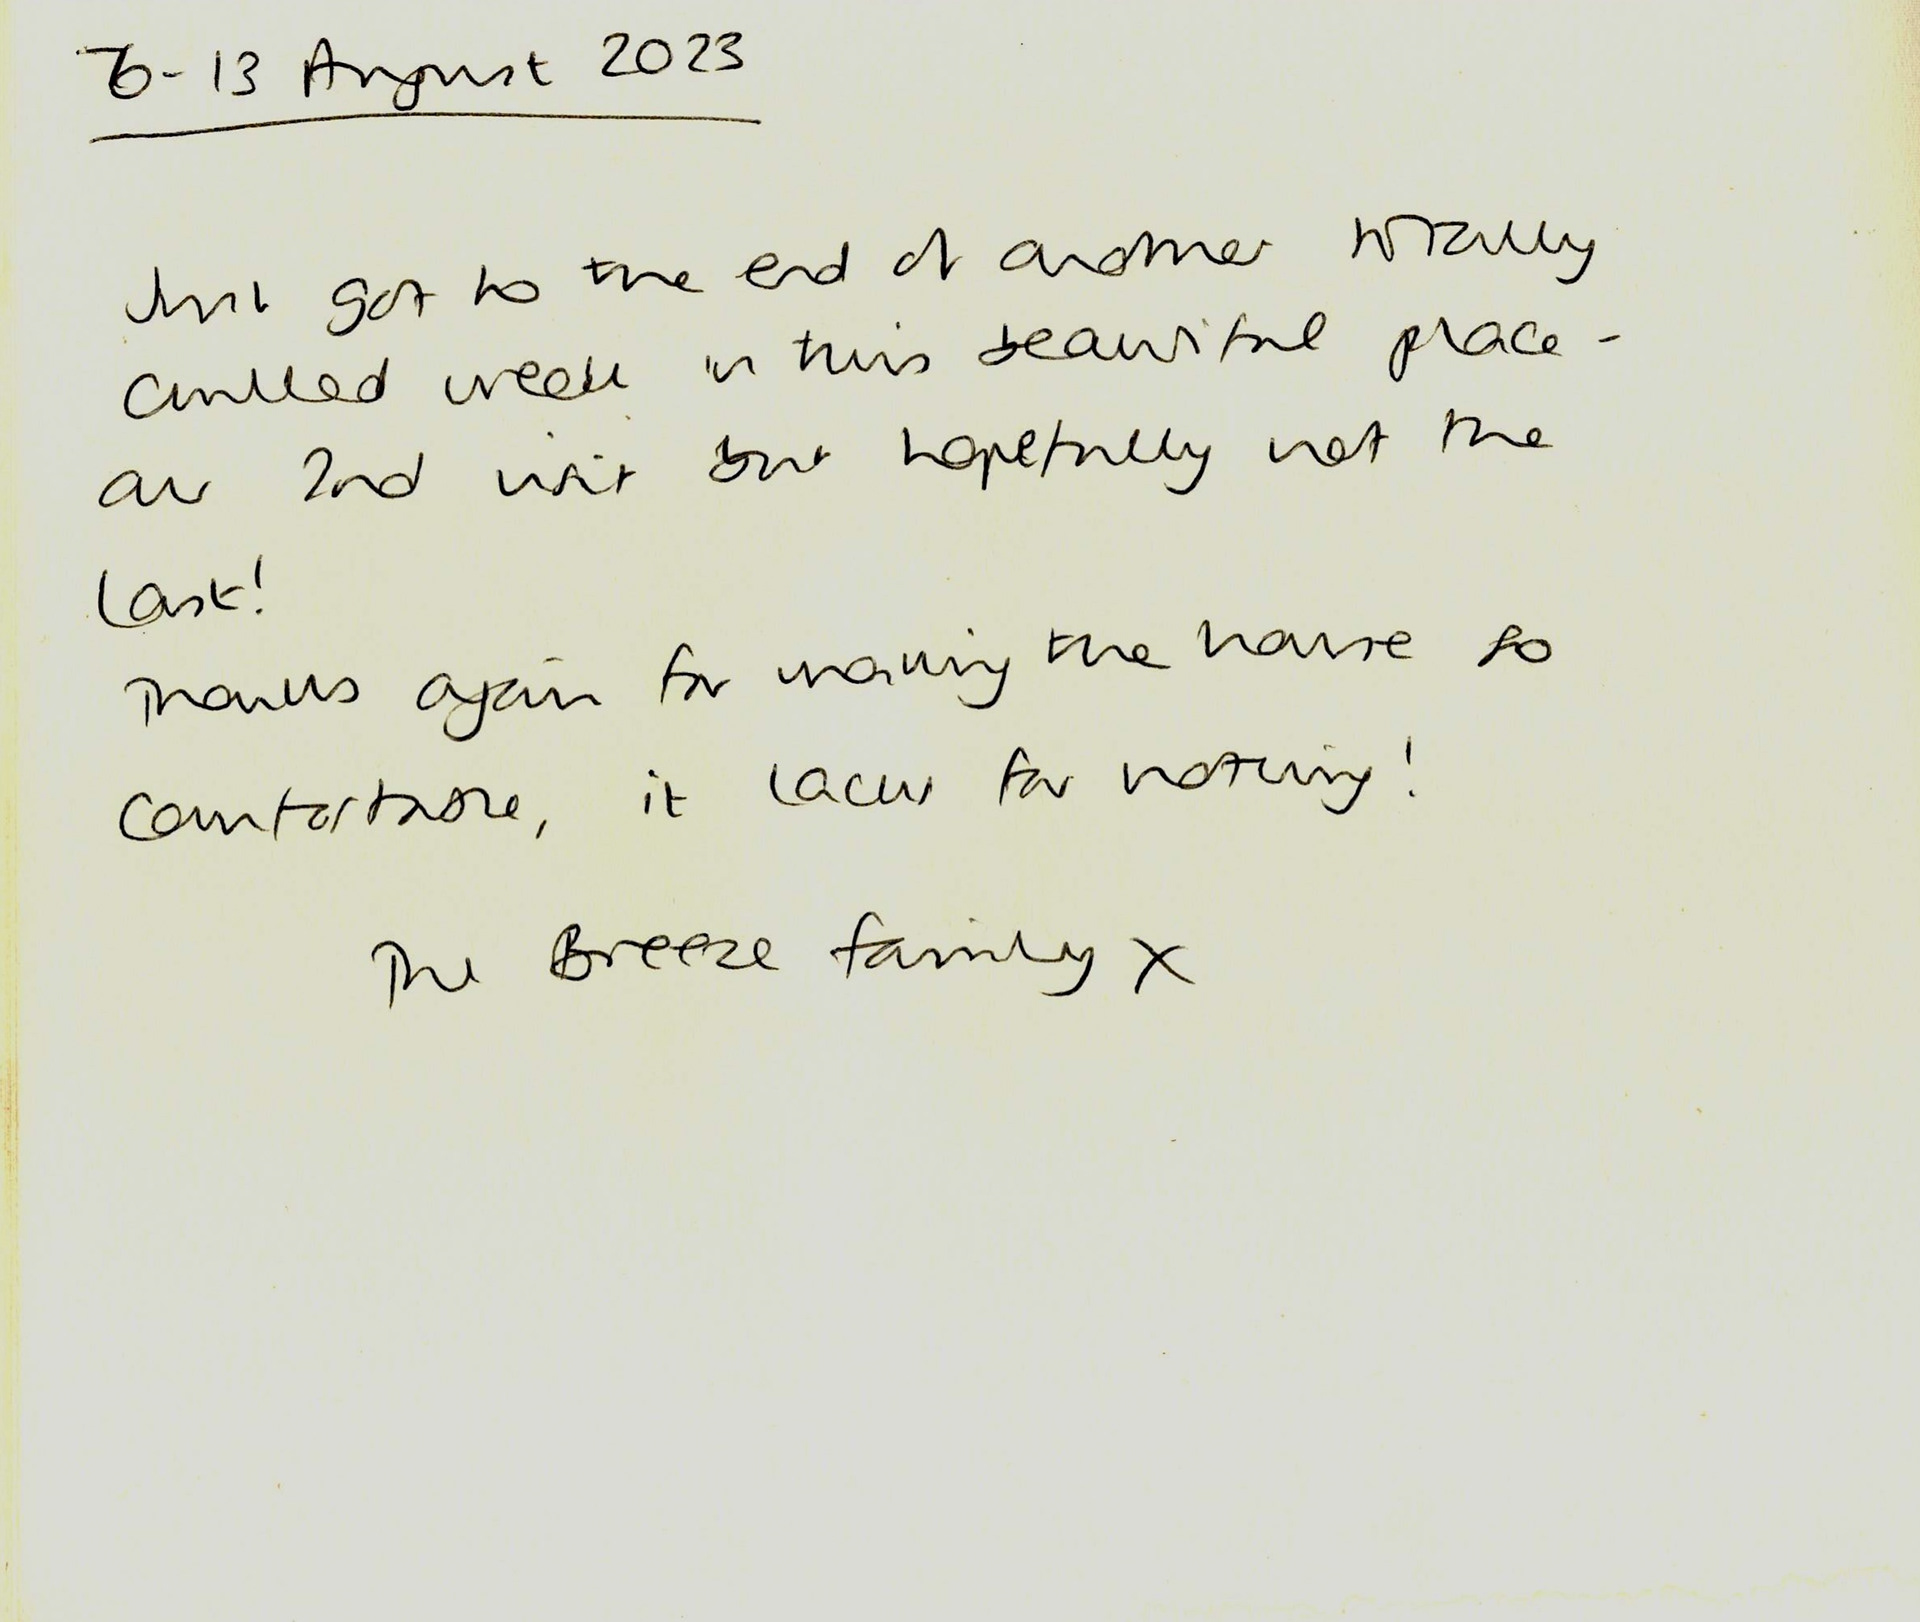 6-13 August 2023
Just got to the end of another totally
chilled week in this beautiful place -
our 2nd visit but hopefully not the
last!
Thanks again for making the house so
comfortable, it lacks for nothing!
The Breeze family x